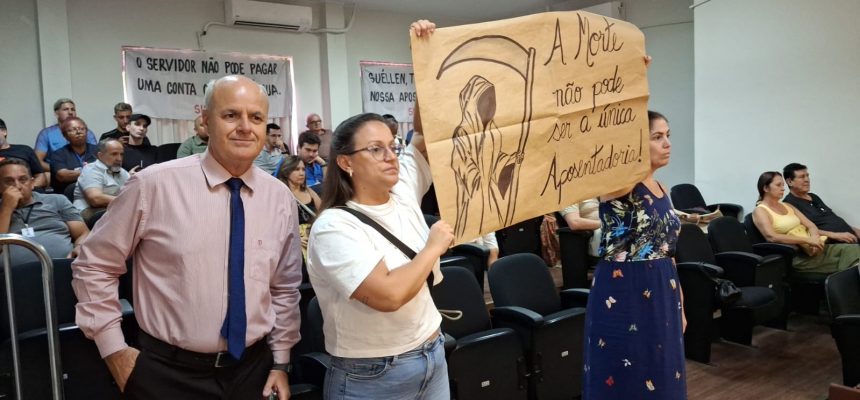 O SERVIDOR NÃO PODE PAGAR
UMA CONTA
SUÉLLEN,
NOSSA APOS
A Morte
não pode
ser a única
Aposentadoria!